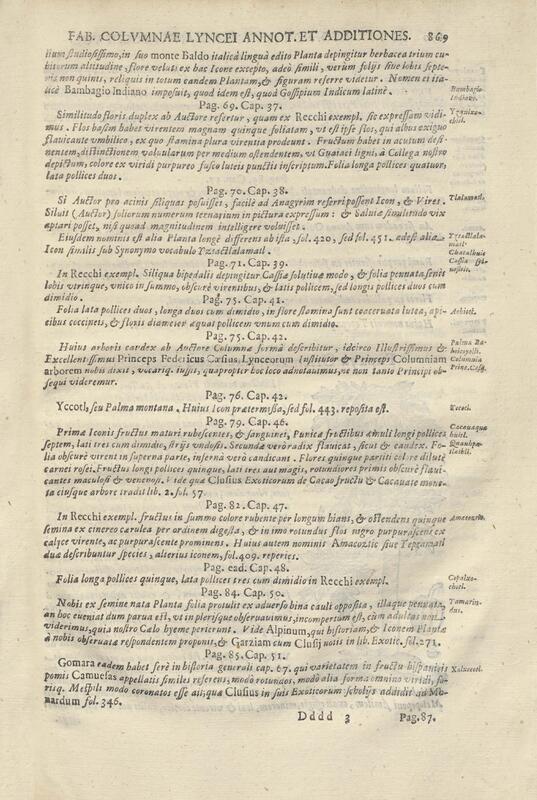 FAB. COLVMNAE LYNCEI ANNOT. ET ADDITIONES. 869
lium studiosissimo, in suo monte Baldo italicâ linguâ edito Planta depingitur herbacea trium cu-
bitorum altitudine, flore veluti ex hac Icone excepto, adeò simili, verùm folijs siue lobis septe-
nis non quinis, reliquis in totum eandem Plantam, & figuram referre videtur. Nomen et ita-
licè Bambagio Indiano imposuit, quod idem est, quod Gossipium Indicum latinè.
Bambagio
Indiano.
Pag. 69. Cap. 37.
Similitudo floris duplex ab Auctore refertur, quam ex Recchi exempl. sic expressam vidi-
mus. Flos basim habet virentem magnam quinque foliatam, vt est ipse flos, qui albus exiguo
flauicante vmbilico, ex quo stamina plura virentia prodeunt. Fructum habet in acutum desi-
nentem, distinctionem valuularum per medium ostendentem, vt Guaiaci ligni, à Collega nostro
depictum, colore ex viridi purpureo fusco luteis punctis inscriptum. Folia longa pollices quatuor,
lata pollices duos.
Pag. 70. Cap. 38.
Si Auctor pro acinis siliquas posuisset, facilè ad Anagyrim referri possent Icon, & Vires.
Siluit (Auctor) foliorum numerum ternarium in pictura expressum: & Saluiæ similitudo vix
aptari posset, nisi quoad magnitudinem intelligere voluisset.
Tlalamatl.
Eiusdem nominis est alia Planta longè differens ab ista, fol. 420, sed fol. 451. adest alia
Icon similis sub Synonymo vocabulo Yztactlalamatl.
Pag. 71. Cap. 39.
In Recchi exempl. Siliqua bipedalis depingitur Cassiæ solutiuæ modo, & folia pennata senis
lobis vtrinque, vnico in summo, obscurè virentibus, & latis pollicem, sed longis pollices duos cum
dimidio.
Pag. 75. Cap. 41.
Folia lata pollices duos, longa duos cum dimidio, in flore stamina sunt coaceruata lutea, api-
cibus coccineis, & floris diameter æquat pollicem vnum cum dimidio.
Pag. 75. Cap. 42.
Huius arboris caudex ab Auctore Columnæ formâ describitur, idcirco Illustrissimus &
Excellentissimus Princeps Federicus Cæsius Lynceorum Institutor & Princeps Columniam
arborem nobis dixit, vocariq. iussit, quapropter hoc loco adnotauimus, ne non tanto Principi ob-
sequi videremur.
Pag. 76. Cap. 42.
Yccotl, seu Palma montana. Huius Icon prætermissa, sed fol. 443. reposita est.
Yccotl.
Pag. 79. Cap. 46.
Primæ Iconis fructus maturi rubescentes, & sanguinei, Punicæ fructibus æmuli longi pollices
septem, lati tres cum dimidio, strijs vndosis. Secundæ verò radix flauicat, sicut & caudex. Fo-
lia obscurè virent in superna parte, infernâ verò candicant. Flores quinque partiti colore dilutè
carnei rosei. Fructus longi pollices quinque, lati tres aut magis, rotundiores primis obscurè flaui-
cantes maculosi & venenosi. Vide quæ Clusius Exoticorum de Cacao fructu & Cacauate mone-
ta eiusque arbore tradit lib. 2. fol. 57.
Pag. 82. Cap. 47.
In Recchi exempl. fructus in summo colore rubente per longum hians, & ostendens quinque
semina ex cinereo cærulea per ordinem digesta, & in imo rotundus flos nigro purpurascens ex
calyce virente, ac purpurascente prominens. Huius autem nominis Amacoztic siue Tepeamatl
duæ describuntur species, alterius iconem, fol. 409. reperies.
Pag. ead. Cap. 48.
Folia longa pollices quinque, lata pollices tres cum dimidio in Recchi exempl.
Pag. 84. Cap. 50.
Nobis ex semine nata Planta folia protulit ex aduerso bina cauli opposita, illaque pennata,
an hoc eueniat dum parua est, vt in plerisque obseruauimus, incompertum est, cum adultas non
viderimus, quia nostro Cælo hyeme perierunt. Vide Alpinum, qui historiam, & Iconem Plantæ
à nobis obseruatæ respondentem proponit, & Garziam cum Clusij notis in lib. Exotic. fol. 271.
Tamarin-
dus.
Pag. 85. Cap. 51.
Gomara eadem habet ferè in historia generali cap. 67. qui varietatem in fructu hispanicis
pomis Camuesas appellatis similes referens, modò rotundos, modò alia forma omnino viridi, fo-
risq. Mespili modo coronatos esse ait; quæ Clusius in suis Exoticorum scholijs addidit ad Mo-
nardum fol. 346.
Dddd 3 Pag. 87.